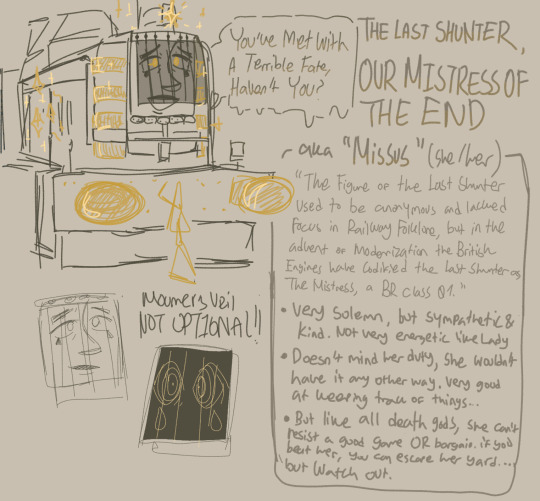 You've Met With
A Terrible Fate,
Haven't You?
THE LAST SHUNTER,
OUR MISTRESS OF
THE END
aka "Missus" (she/her)
"The Figure of the Last Shunter
used to be anonymous and lacked
Focus in Railway Folklore, but in the
advent of Modernization the British
Engines have codified the Last Shunter as
The Mistress, a BR class 01."
• Very Solemn, but sympathetic &
kind. Not very energetic like Lady
• Doesn't mind her duty, She wouldn't
have it any other way. Very good
at keeping track of things...
• But like all death gods, she can't
resist a good game OR bargain. if you
beat her, you can escape her yard....
but Watch out.
Mourners Veil
NOT OPTIONAL!!